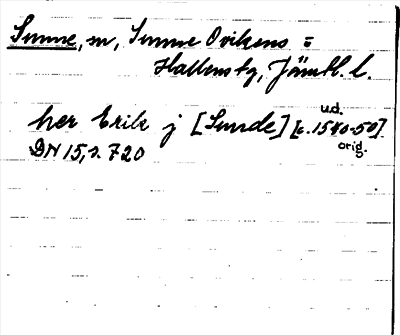 Sunne, m, Sunne Ovikens o
Hallens tg, Jämtl. l.
her Erik j [Sunde] [c. 1540-50] u.d.
DN 15, s. 720 orig.